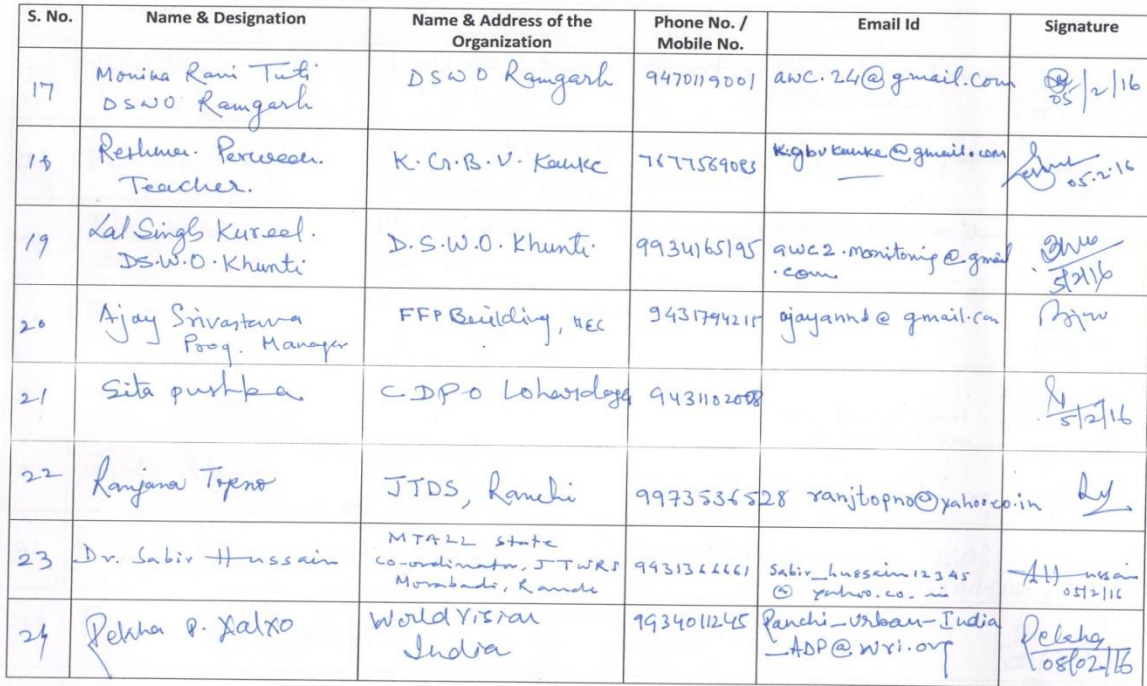 S. No. Name & Designation Name & Address of the Organization Phone No. / Mobile No. Email Id Signature
17 Monika Rani Tuti DSWO Ramgarh 9470119001 awc.24@gmail.com 05/2/16
DSWO Ramgarh
18 Reshma. Perween. K.G.B.V. Kanke 7677569083 k.gbvkanke@gmail.com 05.2.16
Teacher.
19 Lal Singh Kureel. D.S.W.O. Khunti. 9934165195 awc2.monitoring@gmail
D.S.W.O. Khunti .com 5/2/16
20 Ajay Srivastava FFP Building, HEC 9431794215 ajayannd@gmail.com
Prog. Manager
21 Sita pushpa CDPO Lohardaga 9431102008 5/2/16
22 Ranjana Topno JTDS, Ranchi 9973536528 ranjtopno@yahoo.co.in
23 Dr. Sabir Hussain MTALL state
co-ordinator, JTWRI 9431366661 Sabir_hussain12345
Morabadi, Ranchi @ yahoo.co.in 05/2/16
24 Rekha P. Xalxo World Vision 9934011245 Ranchi-urban-India
India _ADP@wvi.org Rekha
08/02/16